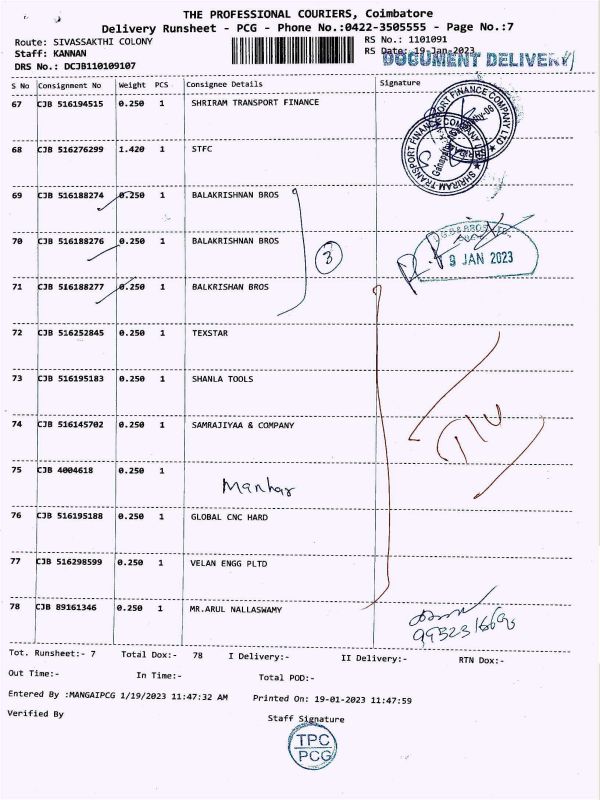 THE PROFESSIONAL COURIERS, Coimbatore
Delivery Runsheet - PCG - Phone No.:0422-3505555 - Page No.:7
Route: SIVASSAKTHI COLONY
RS No.: 1101091
Staff: KANNAN
RS Date: 19-Jan-2023
DRS No.: DCJB110109107
DOCUMENT DELIVERY
S No Consignment No Weight PCS Consignee Details Signature
67 CJB 516194515 0.250 1 SHRIRAM TRANSPORT FINANCE
68 CJB 516276299 1.420 1 STFC
SHRIRAM TRANSPORT FINANCE COMPANY LTD
69 CJB 516188274 0.250 1 BALAKRISHNAN BROS
70 CJB 516188276 0.250 1 BALAKRISHNAN BROS
3
9 JAN 2023
71 CJB 516188277 0.250 1 BALKRISHAN BROS
72 CJB 516252845 0.250 1 TEXSTAR
73 CJB 516195183 0.250 1 SHANLA TOOLS
74 CJB 516145702 0.250 1 SAMRAJIYAA & COMPANY
75 CJB 4004618 0.250 1
Manhar
76 CJB 516195188 0.250 1 GLOBAL CNC HARD
77 CJB 516298599 0.250 1 VELAN ENGG PLTD
78 CJB 89161346 0.250 1 MR.ARUL NALLASWAMY
Tot. Runsheet:- 7 Total Dox:- 78 I Delivery:- II Delivery:- RTN Dox:-
Out Time:- In Time:- Total POD:-
Entered By :MANGAIPCG 1/19/2023 11:47:32 AM Printed On: 19-01-2023 11:47:59
Verified By Staff Signature
TPC
PCG